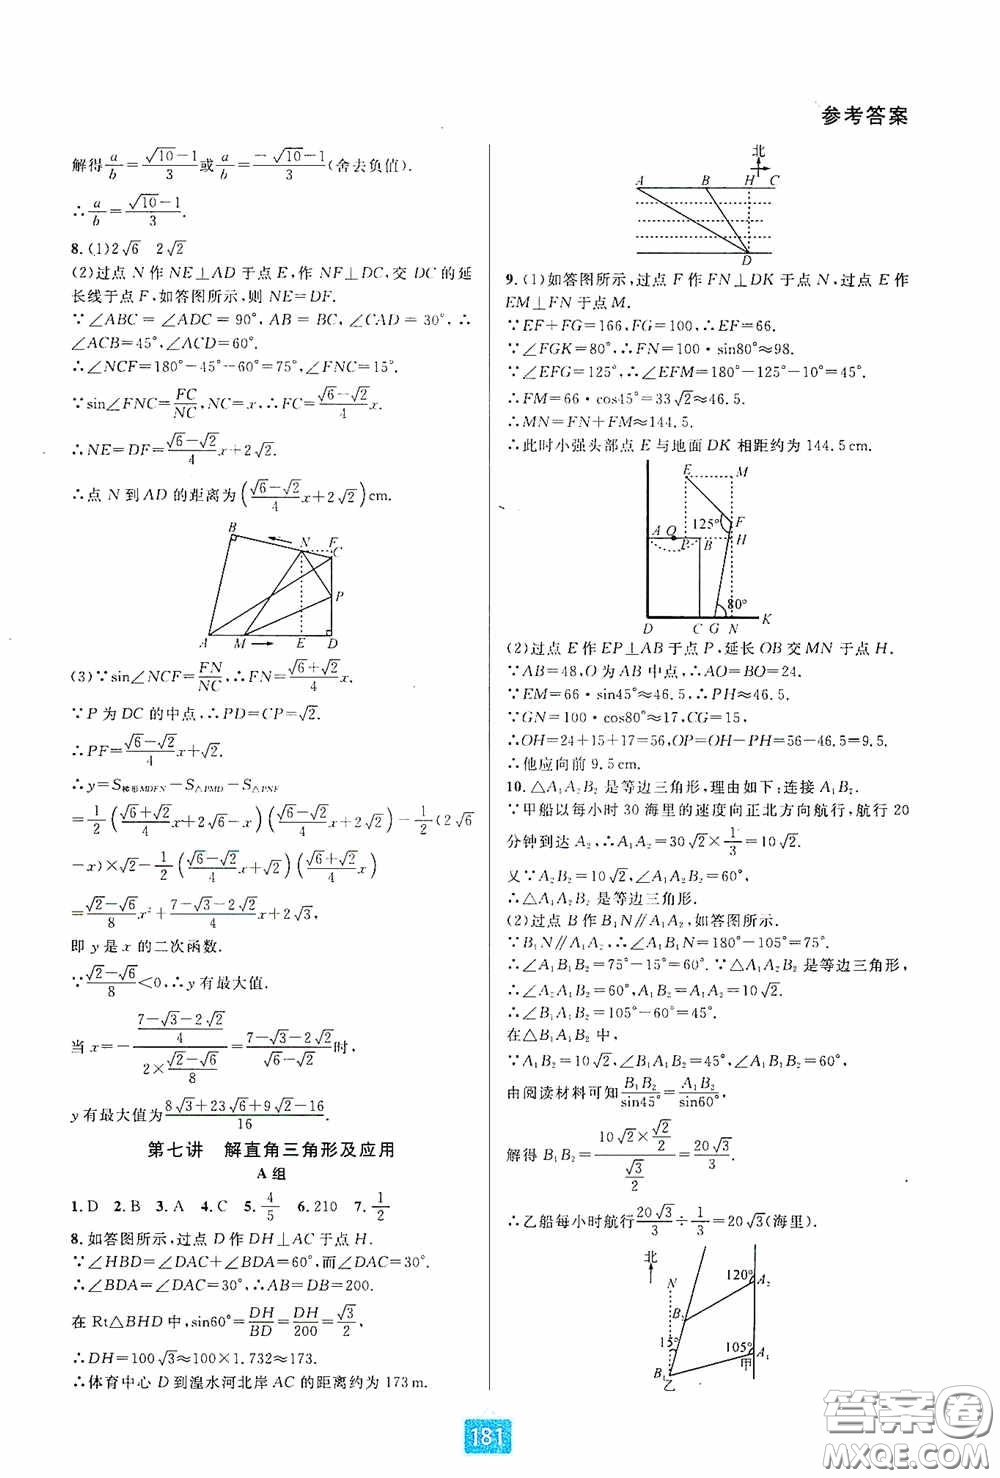 参考答案
解得a/b=(√10-1)/3或a/b=(-√10-1)/3(舍去负值).
∴a/b=(√10-1)/3.
8.(1)2√6 2√2
(2)过点 N 作 NE⊥AD 于点 E,作 NF⊥DC,交 DC 的延
长线于点 F,如答图所示,则 NE=DF.
∵∠ABC=∠ADC=90°,AB=BC,∠CAD=30°,∴
∠ACB=45°,∠ACD=60°.
∴∠NCF=180°-45°-60°=75°,∠FNC=15°.
∵sin∠FNC=FC/NC,NC=x,∴FC=(√6-√2)/4 x.
∴NE=DF=(√6-√2)/4 x+2√2.
∴点 N 到 AD 的距离为((√6-√2)/4 x+2√2)cm.
B
N F
C
P
A M E D
(3)∵sin∠NCF=FN/NC,∴FN=(√6+√2)/4 x.
∵P 为 DC 的中点,∴PD=CP=√2.
∴PF=(√6-√2)/4 x+√2.
∴y=S梯形MDFN-S△PMD-S△PNF
=1/2((√6+√2)/4 x+2√6-x)((√6-√2)/4 x+2√2)-1/2(2√6
-x)×√2-1/2((√6-√2)/4 x+√2)((√6+√2)/4 x)
=(√2-√6)/8 x²+(7-√3-2√2)/4 x+2√3,
即 y 是 x 的二次函数.
∵(√2-√6)/8<0,∴y 有最大值.
当 x=-((7-√3-2√2)/4)/(2×(√2-√6)/8)=(7-√3-2√2)/(√6-√2)时,
y 有最大值为(8√3+23√6+9√2-16)/16.
第七讲 解直角三角形及应用
A 组
1.D 2.B 3.A 4.C 5.4/5 6.210 7.1/2
8.如答图所示,过点 D 作 DH⊥AC 于点 H.
∵∠HBD=∠DAC+∠BDA=60°,而∠DAC=30°,
∴∠BDA=∠DAC=30°,∴AB=DB=200.
在 Rt△BHD 中,sin60°=DH/BD=DH/200=√3/2,
∴DH=100√3≈100×1.732≈173.
∴体育中心 D 到湟水河北岸 AC 的距离约为 173 m.
北
A B H C
D
9.(1)如答图所示,过点 F 作 FN⊥DK 于点 N,过点 E 作
EM⊥FN 于点 M.
∵EF+FG=166,FG=100,∴EF=66.
∵∠FGK=80°,∴FN=100·sin80°≈98.
∵∠EFG=125°,∴∠EFM=180°-125°-10°=45°.
∴FM=66·cos45°=33√2≈46.5.
∴MN=FN+FM≈144.5.
∴此时小强头部点 E 与地面 DK 相距约为 144.5 cm.
E M
125° F
A O P B H
80°
D C G N K
(2)过点 E 作 EP⊥AB 于点 P,延长 OB 交 MN 于点 H.
∵AB=48,O 为 AB 中点,∴AO=BO=24.
∵EM=66·sin45°≈46.5,∴PH≈46.5.
∵GN=100·cos80°≈17,CG=15,
∴OH=24+15+17=56,OP=OH-PH=56-46.5=9.5.
∴他应向前 9.5 cm.
10.△A₁A₂B₂ 是等边三角形,理由如下:连接 A₁B₂.
∵甲船以每小时 30 海里的速度向正北方向航行,航行 20
分钟到达 A₂,∴A₁A₂=30√2×1/3=10√2.
又∵A₂B₂=10√2,∠A₁A₂B₂=60°,
∴△A₁A₂B₂ 是等边三角形.
(2)过点 B 作 B₁N∥A₁A₂,如答图所示.
∵B₁N∥A₁A₂,∴∠A₁B₁N=180°-105°=75°.
∴∠A₁B₁B₂=75°-15°=60°.∵△A₁A₂B₂ 是等边三角形,
∴∠A₂A₁B₂=60°,A₁B₂=A₁A₂=10√2.
∴∠B₁A₁B₂=105°-60°=45°.
在△B₁A₁B₂ 中,
∵A₁B₂=10√2,∠B₁A₁B₂=45°,∠A₁B₁B₂=60°,
由阅读材料可知B₁B₂/sin45°=A₁B₂/sin60°,
解得 B₁B₂=(10√2×√2/2)/(√3/2)=20√3/3.
∴乙船每小时航行20√3/3÷1/3=20√3(海里).
北
N 120° A₂
B₂
15° 105° A₁
B₁ 甲
乙
181
答案圈
MXQE.COM